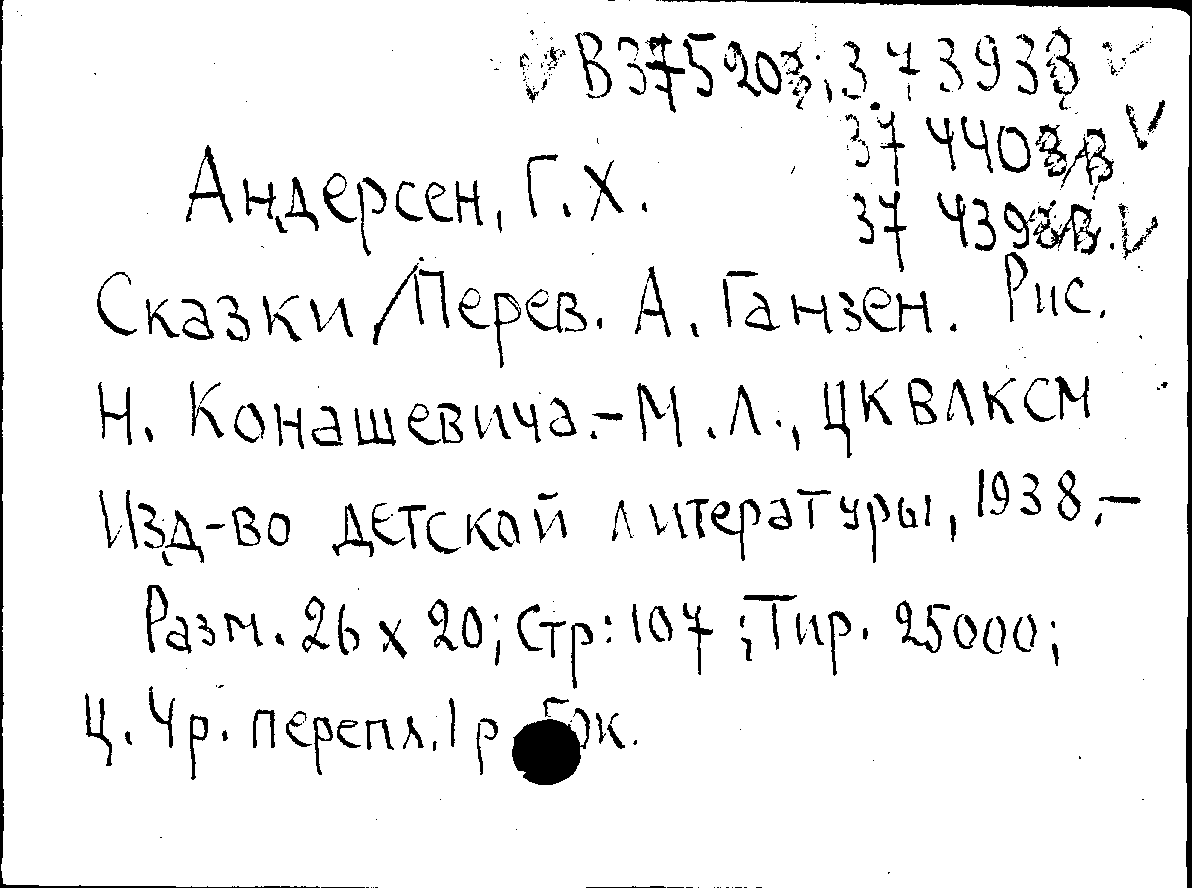 В37520з; 373933
37 4403
Андерсен, Г. Х.
37 439
Сказки / Перев. А. Ганзен. Рис.
Н. Конашевича.- М. Л., ЦК ВЛКСМ
Изд-во детской литературы, 1938.-
Разм. 26 х 20; Стр: 107; Тир. 25000;
Ц. 4р. перепл. 1р 50к.